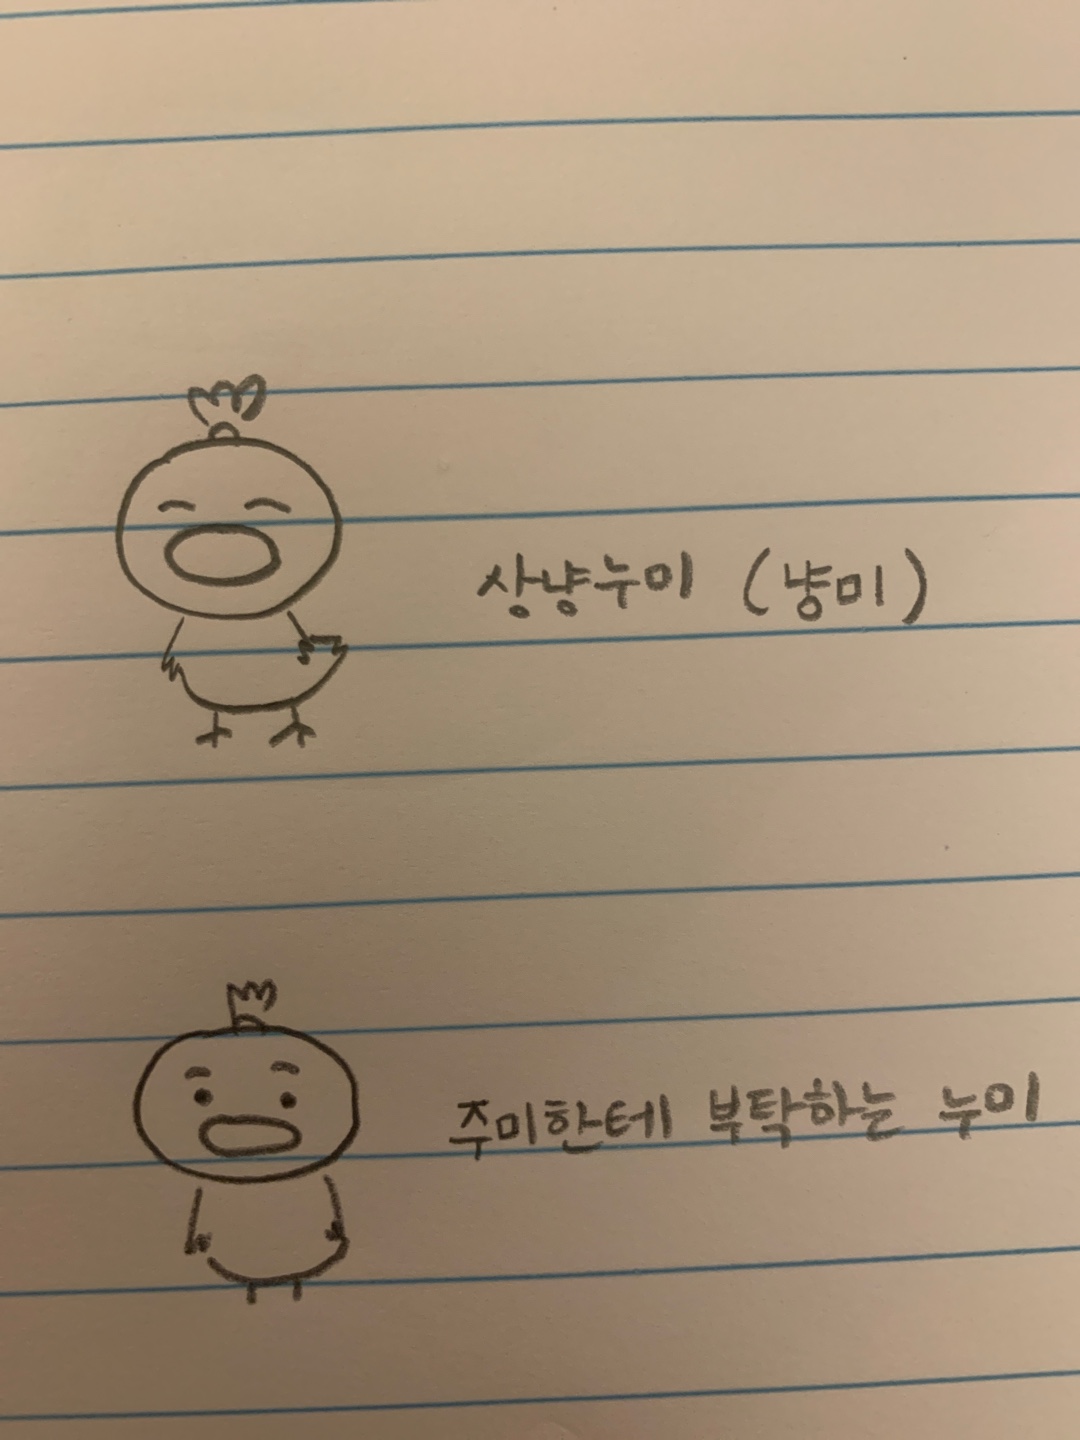 상냥누미 (냥미)
주미한테 부탁하는 누미